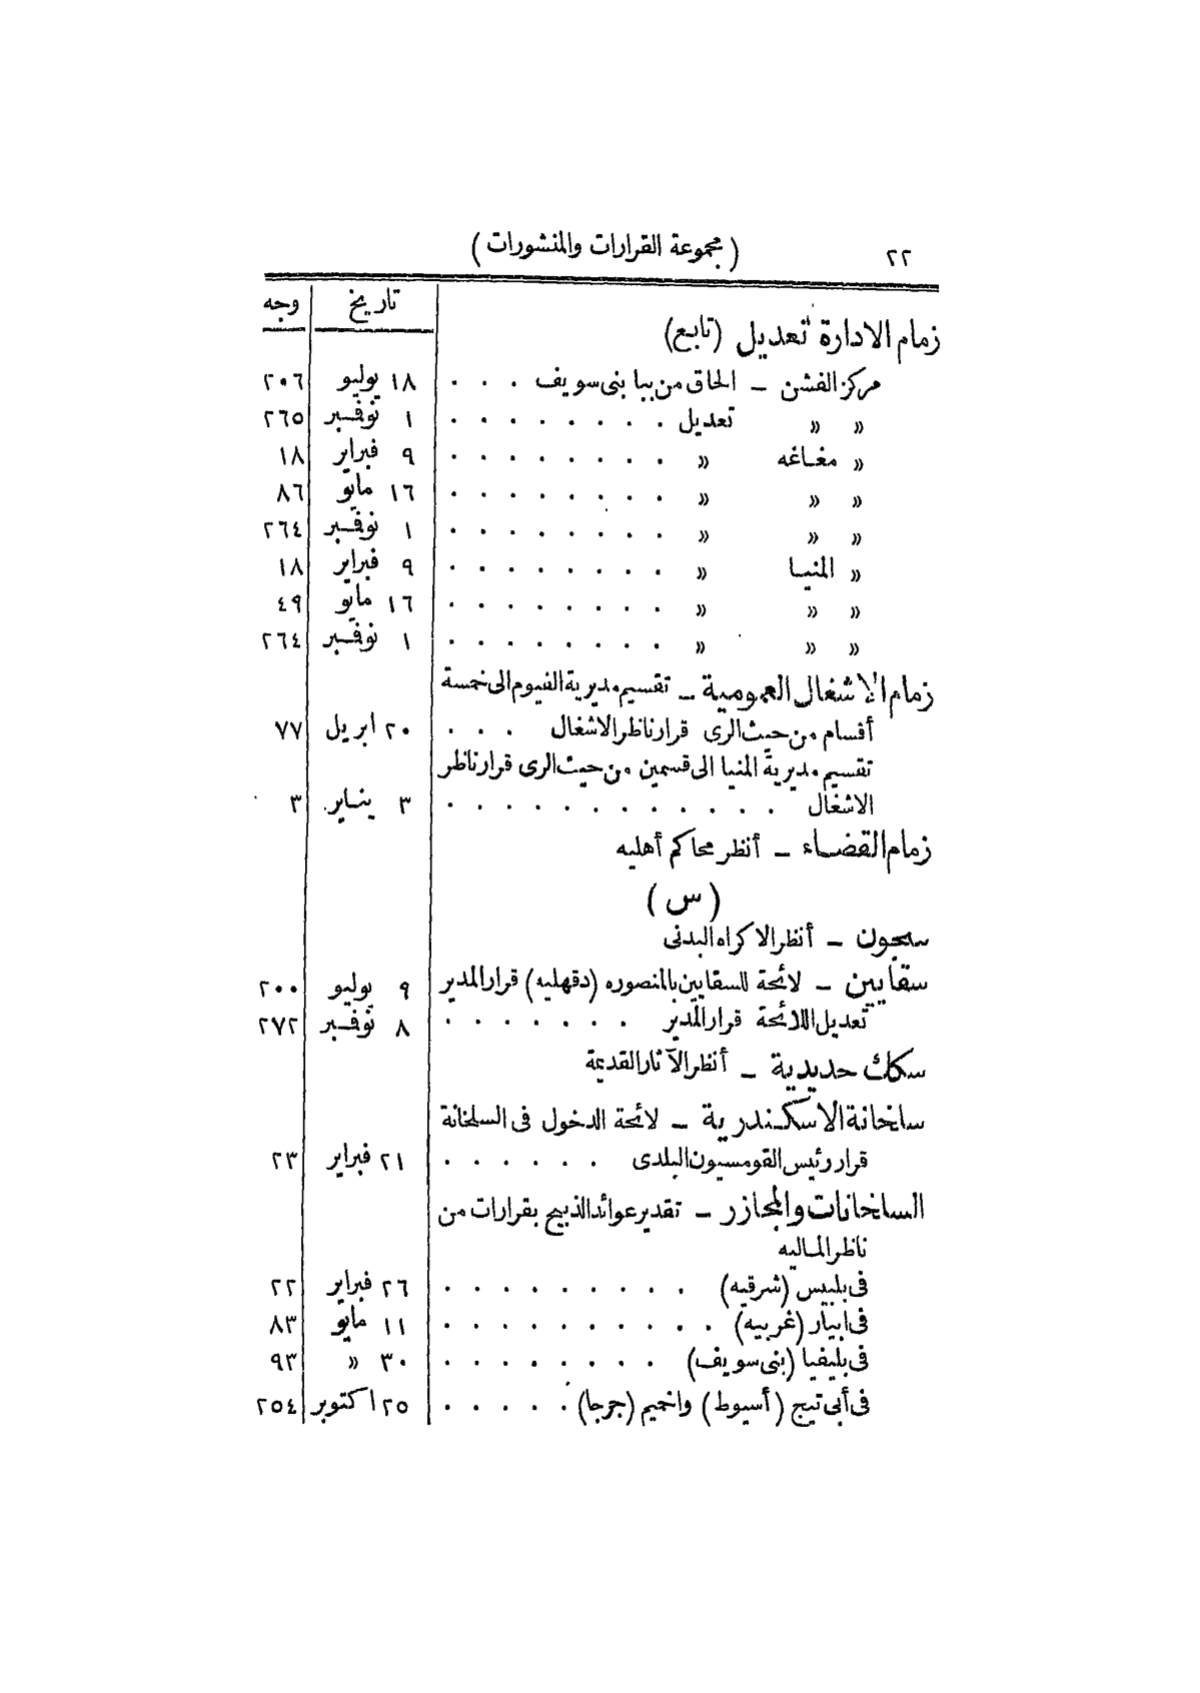 ٢٢ (مجموعة القرارات والمنشورات)
تاريخ وجه
زمام الادارة تعديل (تابع)
مركز الفشن – الحاق من ببا بنى سويف . . . ١٨ يوليو ٢٠٦
« « تعديل . . . . . . . . ١ نوفمبر ٢٦٥
« مغاغه « . . . . . . . . ٩ فبراير ١٨
« « « . . . . . . . . ١٦ مايو ٨٦
« « « . . . . . . . . ١ نوفمبر ٢٦٤
« المنيا « . . . . . . . . ٩ فبراير ١٨
« « « . . . . . . . . ١٦ مايو ٤٩
« « « . . . . . . . . ١ نوفمبر ٢٦٤
زمام الاشغال العمومية – تقسيم مديرية الفيوم الى خمسة
أقسام من حيث الرى قرار ناظر الاشغال . . . ٢٠ ابريل ٧٧
تقسيم مديرية المنيا الى قسمين من حيث الرى قرار ناظر
الاشغال . . . . . . . . . . . . ٣ يناير ٣
زمام القضاء – أنظر محاكم أهليه
(س)
سجون – أنظر الاكراه البدنى
سقايين – لائحة للسقايين بالمنصوره (دقهليه) قرار المدير ٩ يوليو ٢٠٠
تعديل اللائحة قرار المدير . . . . . . . ٨ نوفمبر ٢٧٢
سكك حديدية – أنظر الآثار القديمة
سلخانة الاسكندرية – لائحة الدخول فى السلخانة
قرار رئيس القومسيون البلدى . . . . . . ٢١ فبراير ٢٣
السلخانات والمجازر – تقدير عوائد الذبيح بقرارات من
ناظر الماليه
فى بلبيس (شرقيه) . . . . . . . . . ٢٦ فبراير ٢٢
فى ابيار (غربيه) . . . . . . . . . . ١١ مايو ٨٣
فى بليفيا (بنى سويف) . . . . . . . . ٣٠ « ٩٣
فى أبى تيج (أسيوط) واخميم (جرجا) . . . . . ٢٥ اكتوبر ٢٥٤